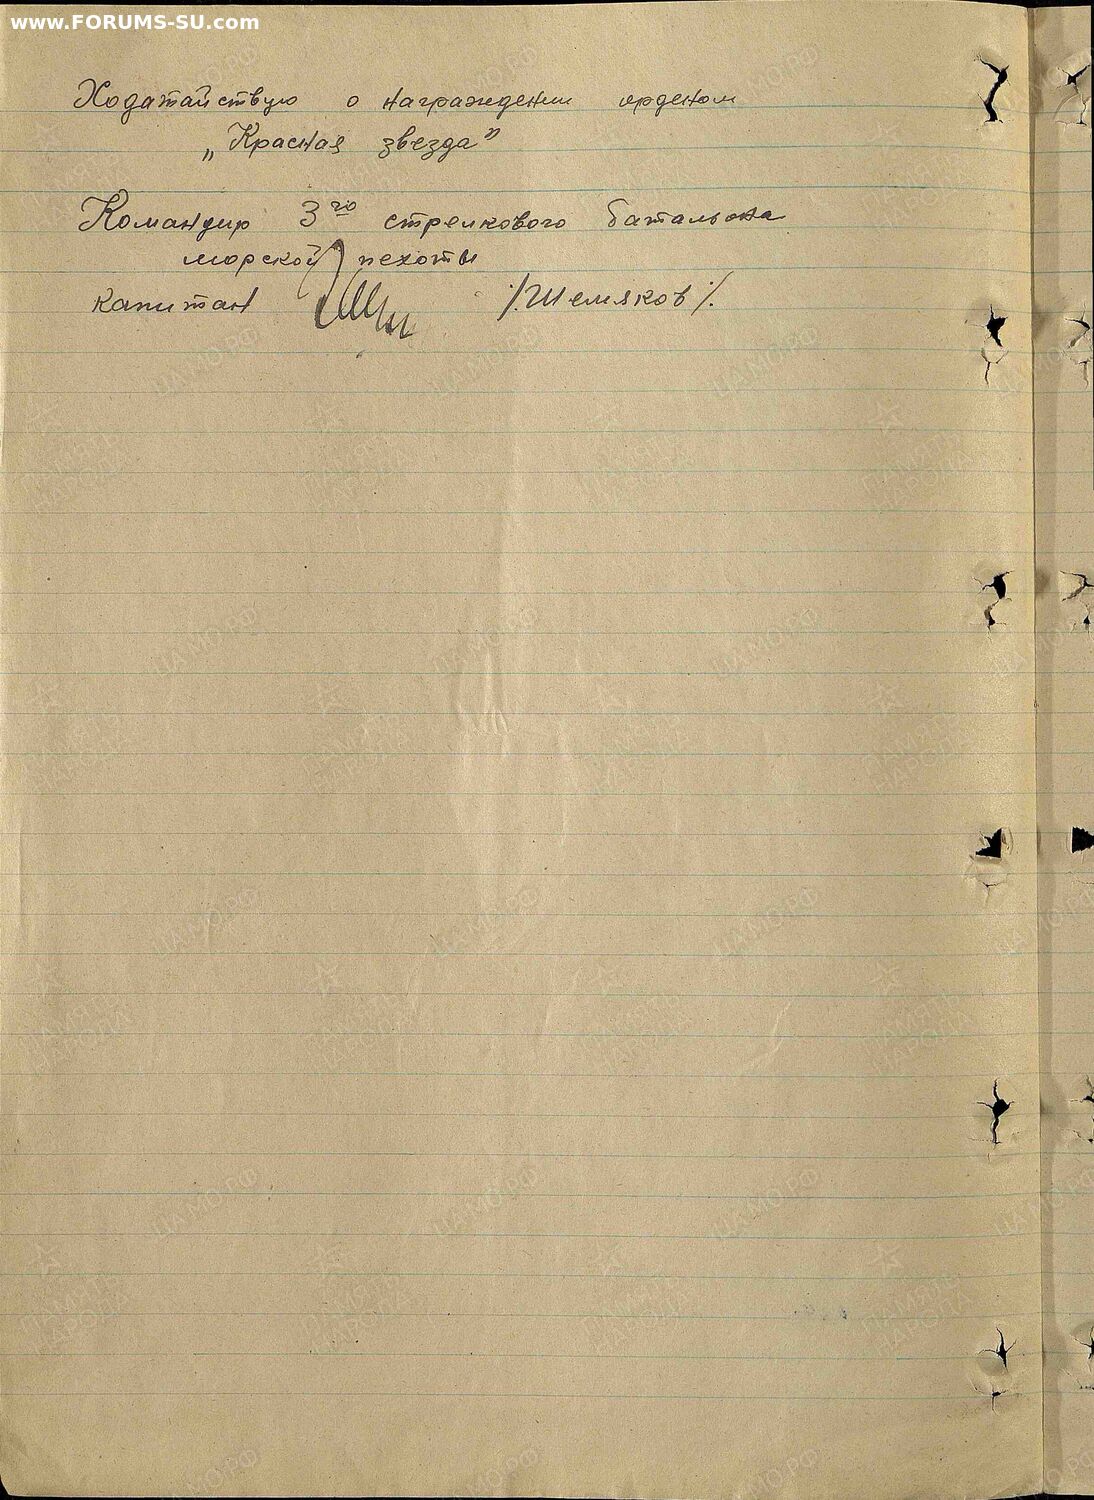 www.FORUMS-SU.com
Ходатайствую о награждении орденом
„Красная звезда"
Командир 3го стрелкового батальона
морской пехоты
капитан /Шемяков/.